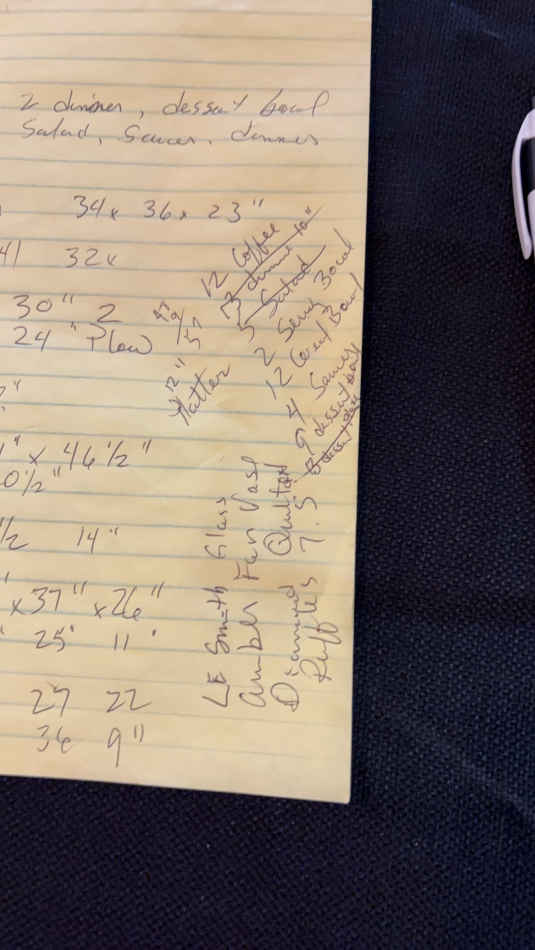 2 dinner, dessert bowl
Salad, Saucer, dinner
34x 36x 23"
41 32x
30" 2
24" Plow
" x 46 1/2"
0 1/2"
1/2 14"
x37" x26"
25" 11"
27 22
36 9"
12 Coffee
dinner 10"
5 Salad
2 Serving Bowl
12 Cereal Bowl
4 Saucer
9 dessert bowl
12"
Platter
LE Smith Glass
Amber Fan Vase
Diamond Quilted
Ruffles 7.5